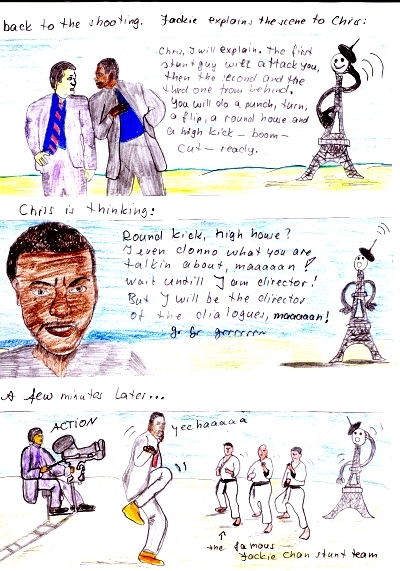 back to the shooting. Jackie explains the scene to Chris:
Chris, I will explain. The first
stunt guy will attack you,
then the second and the
third one from behind.
You will do a punch, turn,
a flip, a round house and
a high kick – boom –
Cut – ready.
Chris is thinking:
Round kick, high house?
I even donno what you are
talkin about, maaaaan!
wait untill I am director!
But I will be the director
of the dialogues, maaaaan!
gr gr grrrrrrr
A few minutes later...
ACTION
yechaaaaa
the famous
Jackie Chan stunt team